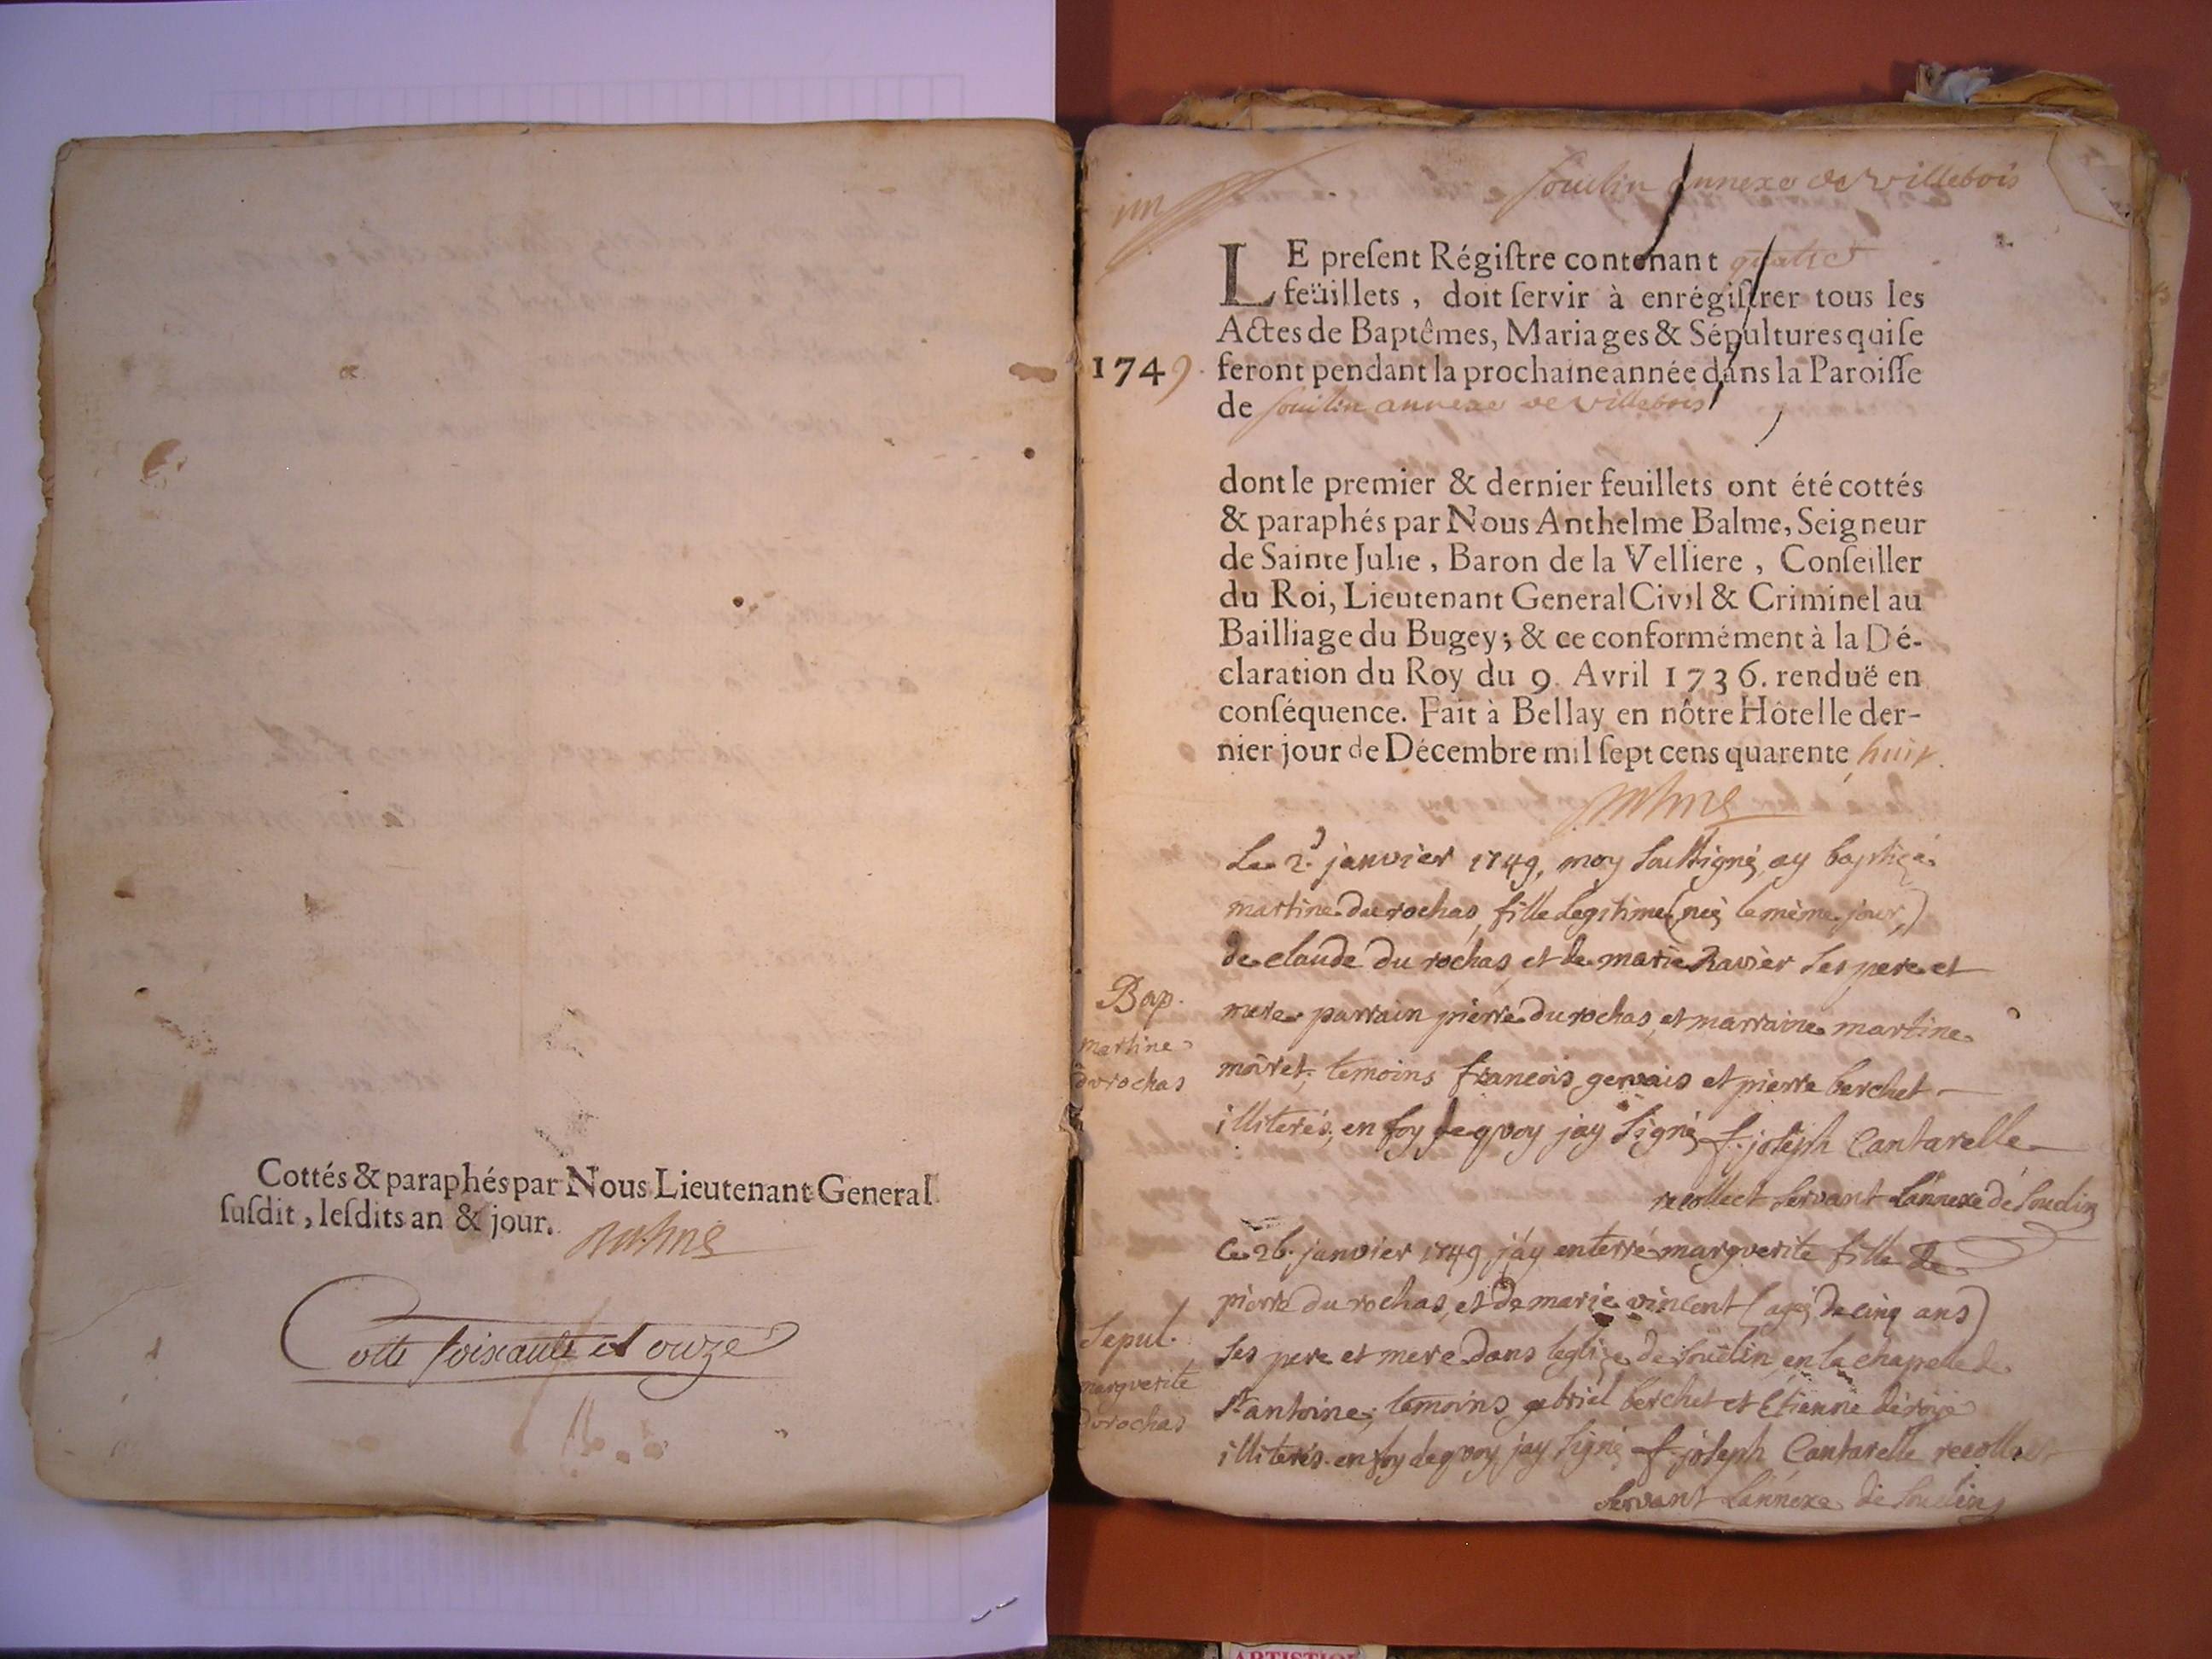 Cottés & paraphés par Nous Lieutenant General
ſuſdit, leſdits an & jour.
Cotte soixante et onze
un
Souclin annexe de Villebois
LE preſent Régiſtre contenant quatre
feüillets, doit ſervir à enrégiſtrer tous les
Actes de Baptêmes, Mariages & Sépultures qui ſe
1749 feront pendant la prochaine année dans la Paroiſſe
de Souclin annexe de Villebois
dont le premier & dernier feuillets ont été cottés
& paraphés par Nous Anthelme Balme, Seigneur
de Sainte Julie, Baron de la Velliere, Conſeiller
du Roi, Lieutenant General Civil & Criminel au
Bailliage du Bugey; & ce conformément à la Dé-
claration du Roy du 9. Avril 1736. renduë en
conſéquence. Fait à Bellay en nôtre Hôtel le der-
nier jour de Décembre mil ſept cens quarente huit.
Le 2.d janvier 1749, moy Soussigné, ay baptizé
martine du rochas, fille Legitime (neé le même jour,)
de claude du rochas et de marie Ravier Ses pere et
Bap.
martine
durochas
mere parrain pierre du rochas, et marraine martine
moiret; temoins francois gervais et pierre berchet
illiterés, en foy de quoy jay Signé f. joseph Cantarelle
recollect Servant L'annexe de Souclin
Ce 26. janvier 1749 j'ay enterré marguerite fille de
pierre du rochas, et de marie vincent (ageé de cinq ans)
Sepul.
marguerite
durochas
Ses pere et mere dans leglize de Souclin, en la chapelle de
St antoine; temoins gebriel berchet et Etienne
illiterés. en foy de quoy jay Signé f. joseph Cantarelle recollect
Servant L'annexe de Souclin
ARTISTIQUE